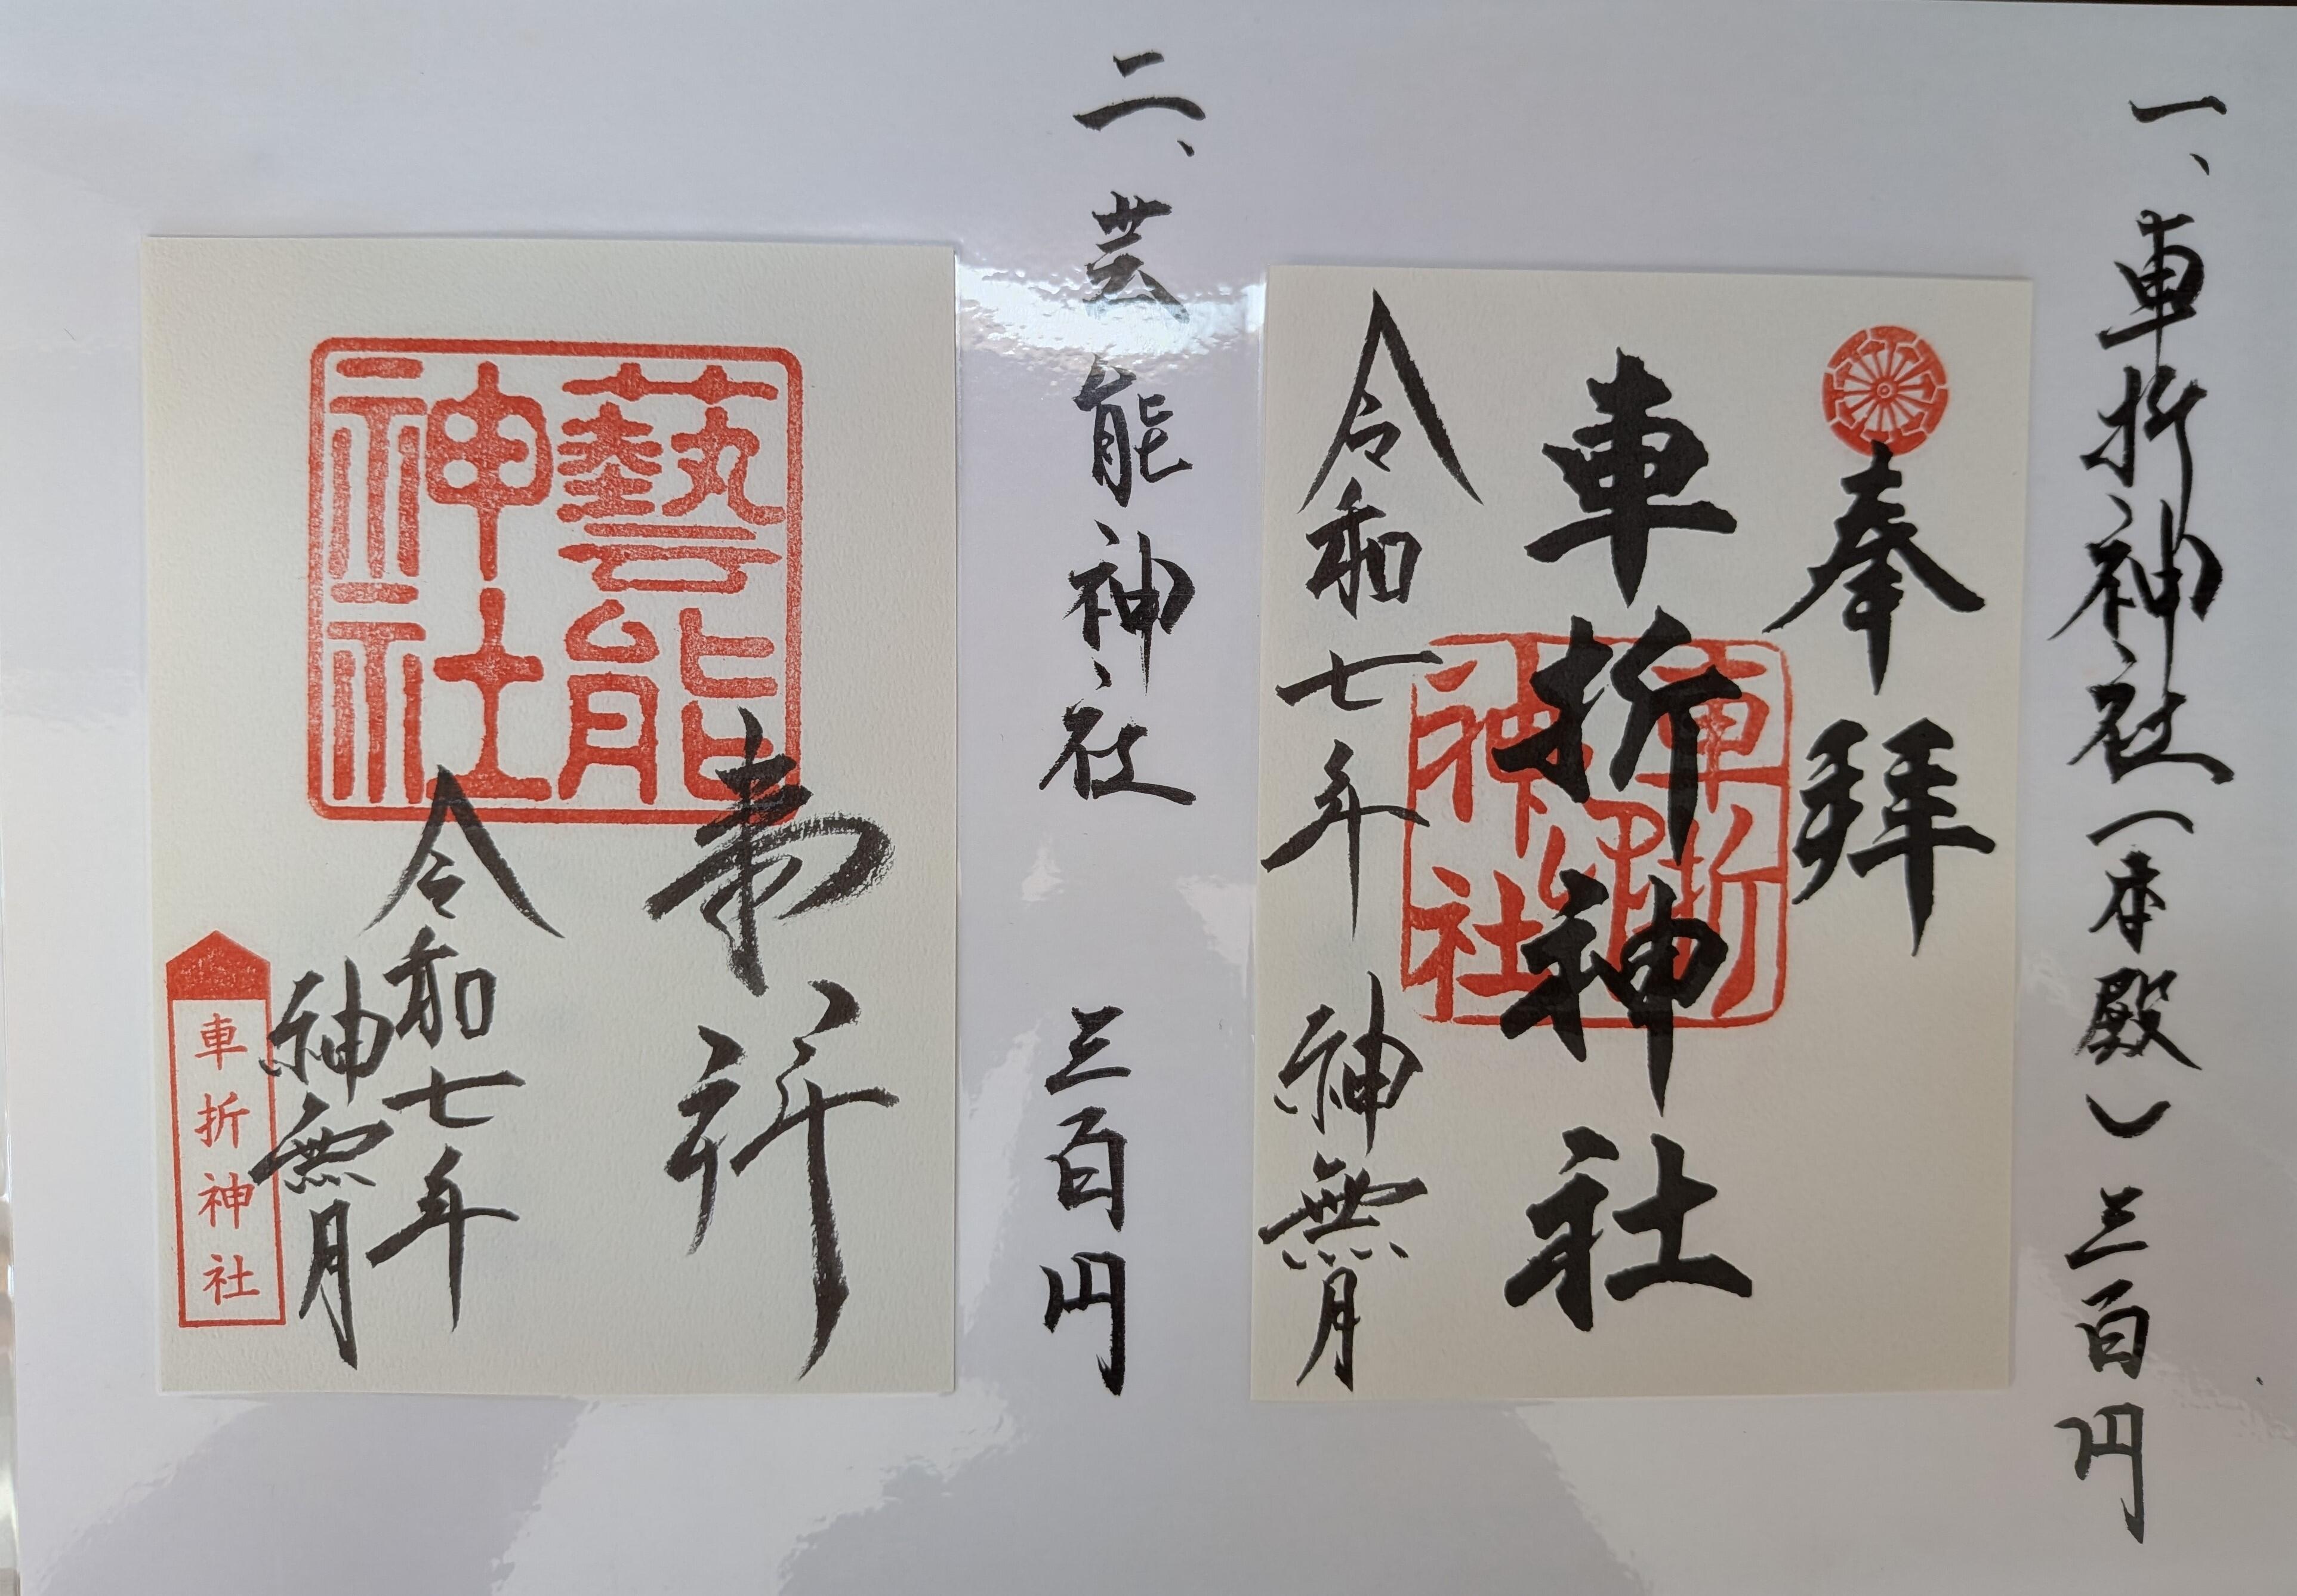 一、車折神社(本殿)三百円
奉拝
車折神社
車折
神社
令和七年 神無月
二、芸能神社 三百円
藝能
神社
令和七年
神無月
車折神社